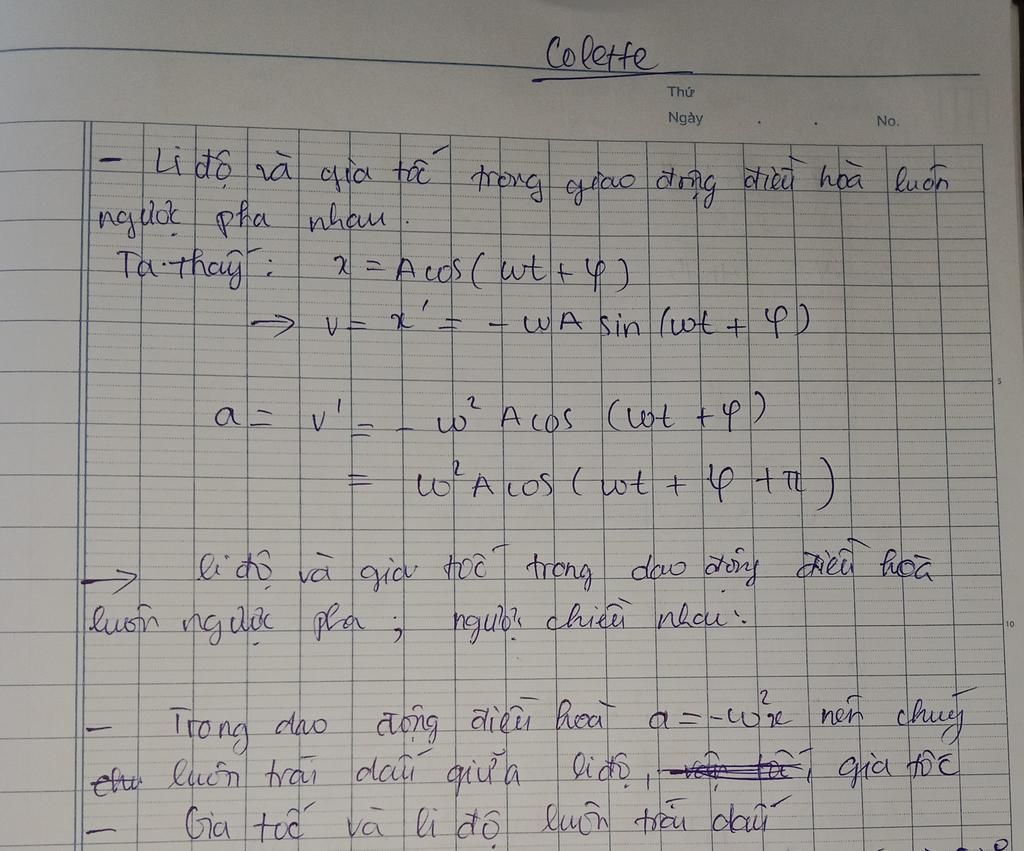 Colette
Thứ
Ngày . . No.
- Li độ và gia tốc trong giao động điều hoà luôn
ngược pha nhau.
Ta thấy: x = Acos(ωt + φ)
→ v = x' = - ωA sin (ωt + φ)
5
a = v' = - ω² A cos (ωt + φ)
= ω² A cos (ωt + φ + π)
→ li độ và gia tốc trong dao động điều hoà
luôn ngược pha; ngược chiều nhau.
10
- Trong dao động điều hoà a = -ω²x nên chúng
luôn trái dấu giữa li độ, gia tốc
- Gia tốc và li độ luôn trái dấu